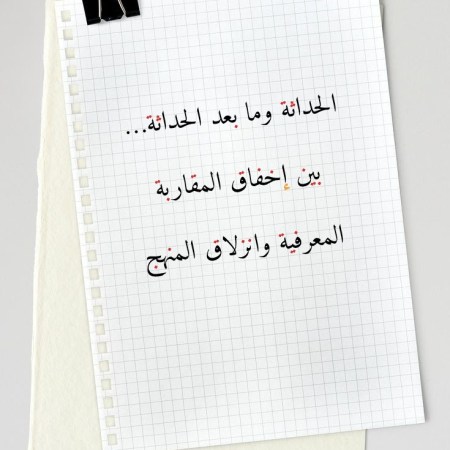 الحداثة وما بعد الحداثة...
بين إخفاق المقاربة
المعرفية وانزلاق المنهج